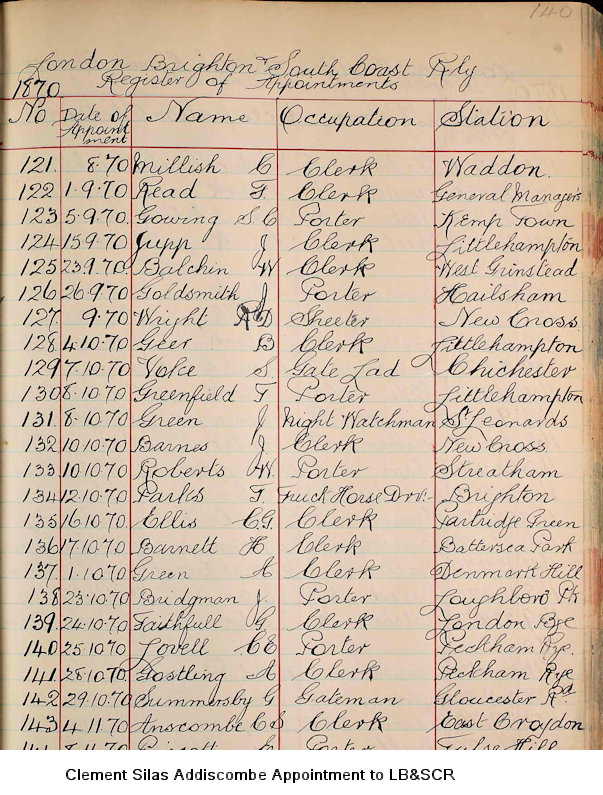 140
London Brighton & South Coast Rly
1870 Register of Appointments
No Date of Appointment Name Occupation Station
121. 8.70 Millish C Clerk Waddon.
122 1.9.70 Read F. Clerk General Managers
123 5.9.70. Gowing S.C Porter Kemp Town
124 15.9.70 Jupp J Clerk Littlehampton
125 23.9.70. Balchin W Clerk West Grinstead
126 26.9.70 Goldsmith J Porter Hailsham
127 9.70 Wright Sheeter New Cross
128 4.10.70 Geer B Clerk Littlehampton
129 7.10.70 Voke S Gate Lad Chichester
130 8.10.70 Greenfield F Porter Littlehampton
131. 8.10.70 Green J Night Watchman St Leonards
132 10.10.70 Barnes J. Clerk New Cross
133 10.10.70 Roberts W Porter Streatham
134 12.10.70 Parks F. Truck Horse Drv:- Brighton
135 16.10.70 Ellis C.G. Clerk Partridge Green
136 17.10.70 Barnett H Clerk Battersea Park
137. 1.10.70 Green A Clerk Denmark Hill
138 23.10.70 Bridgman J. Porter Loughboro Pk
139. 24.10.70 Faithfull G Clerk London Bge
140 25.10.70 Lovell C E Porter Peckham Rye.
141 28.10.70 Gostling A Clerk Peckham Rye
142 29.10.70 Summersby G Gateman Gloucester Rd
143 4.11.70 Anscombe C S Clerk East Croydon
Porter Tulse Hill
Clement Silas Addiscombe Appointment to LB&SCR